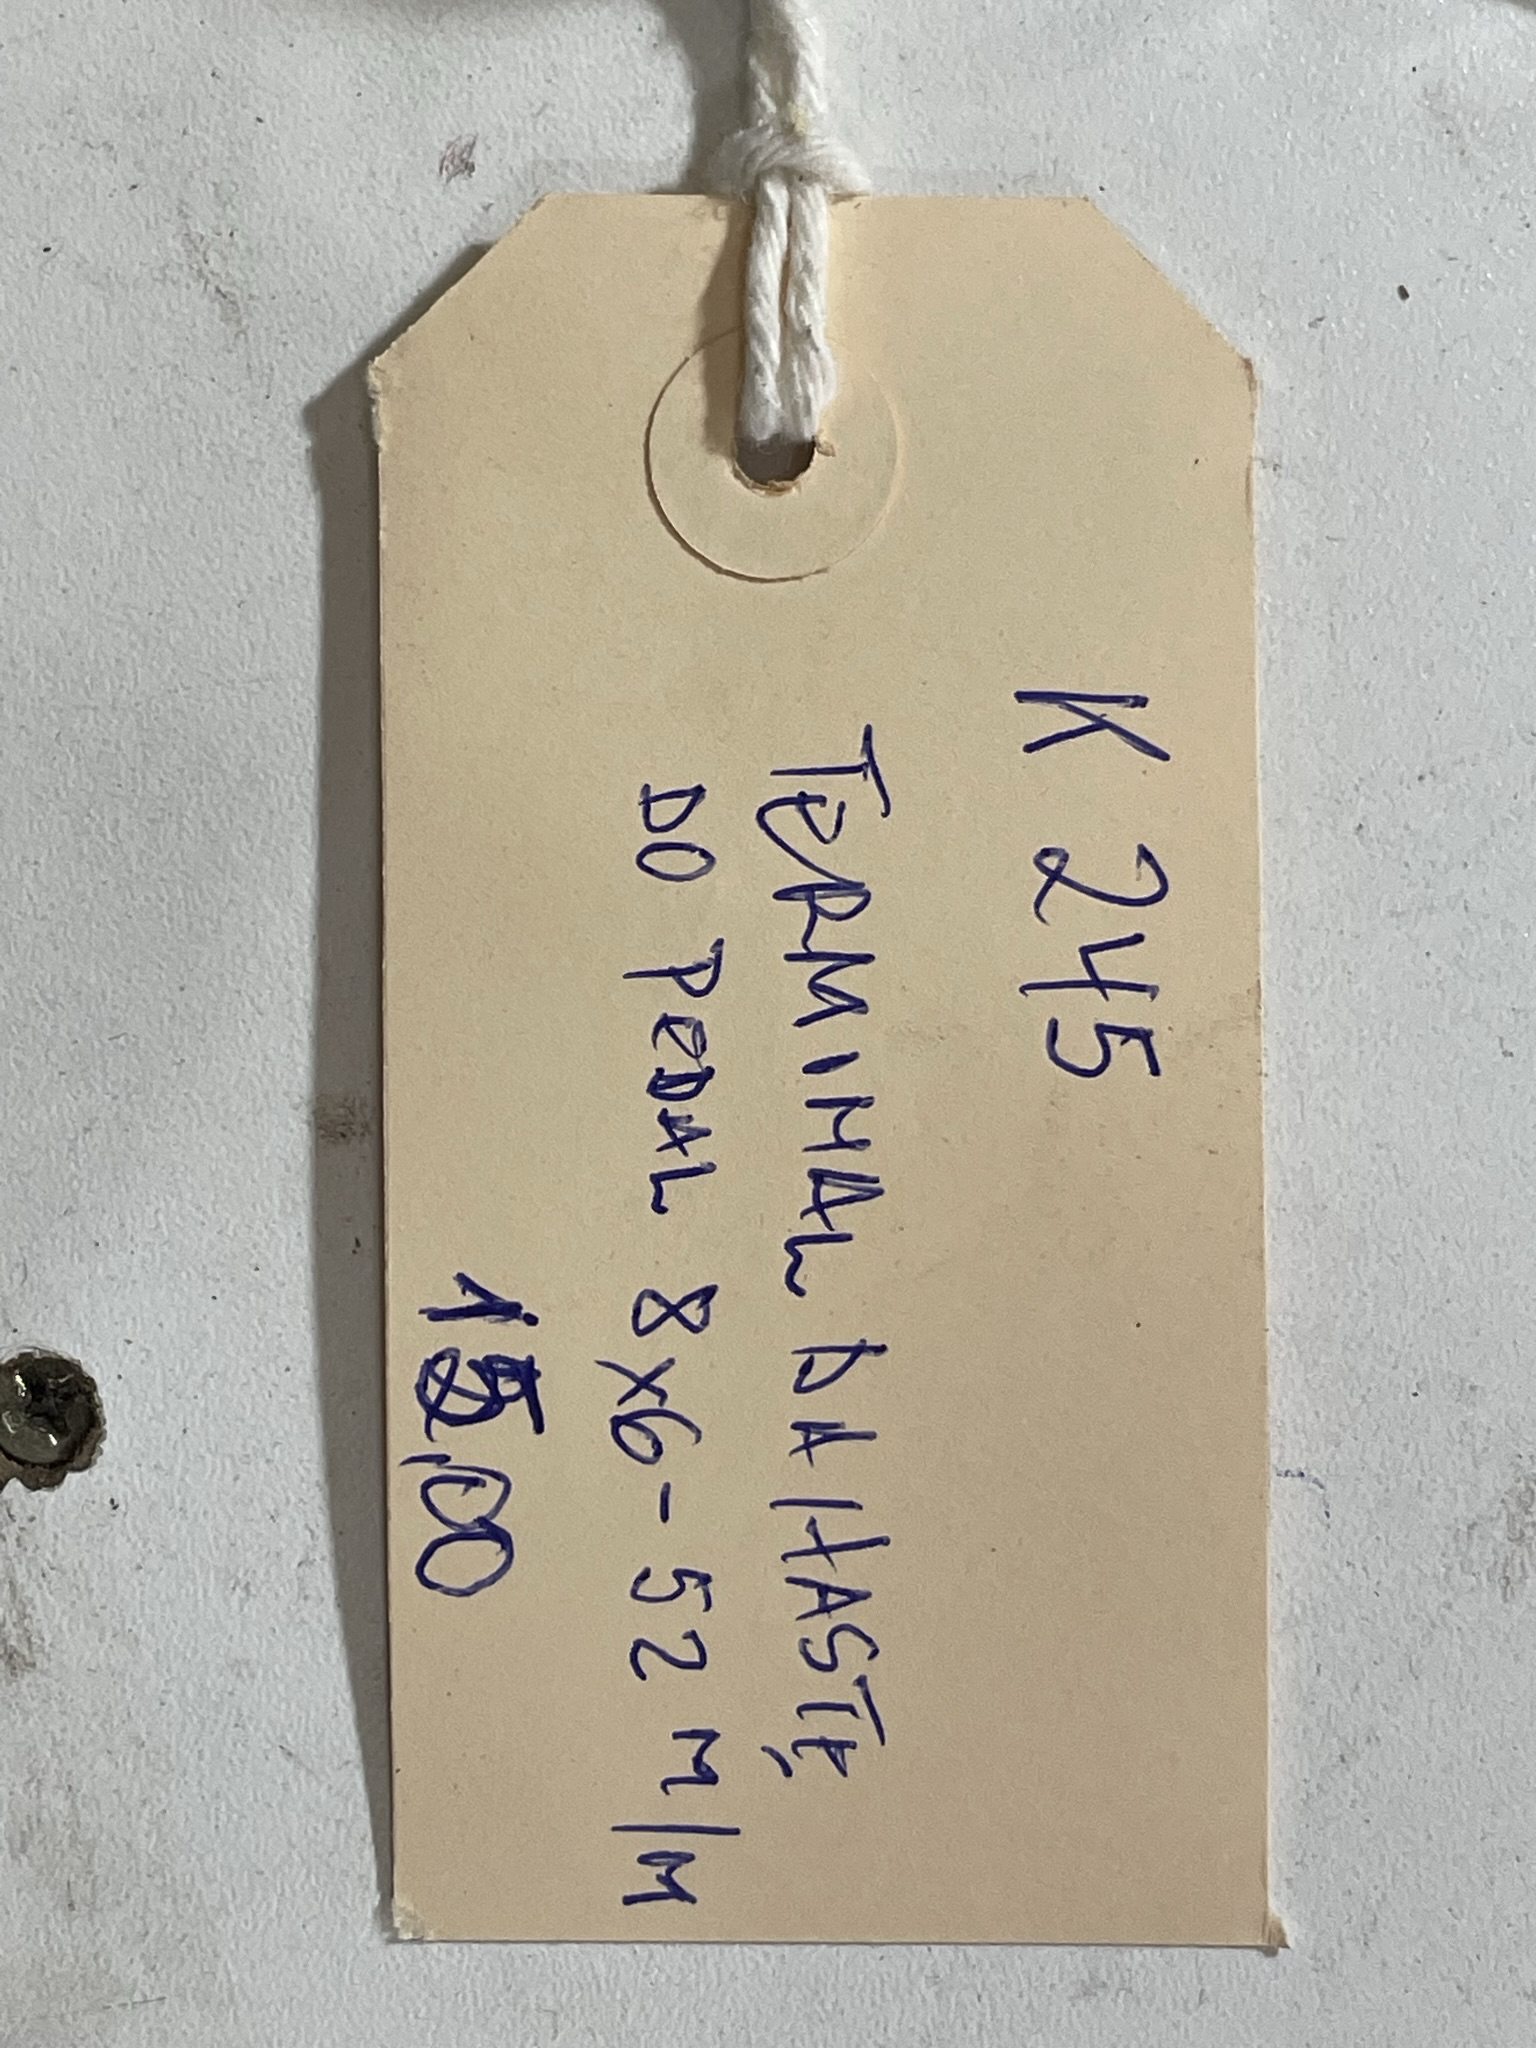 K 245
TERMINAL DA HASTE
DO PEDAL 8x6-52 M/M
15,00